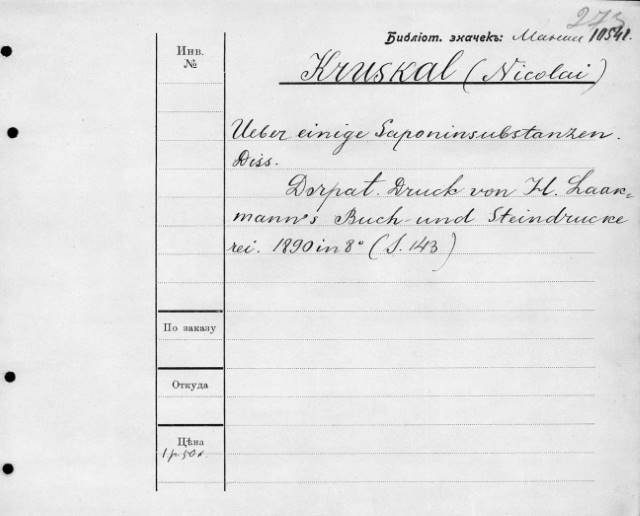 273
Библіот. значекъ: 10541.
Инв.
№
Kruskal (Nicolai)
Ueber einige Saponinsubstanzen.
Diss.
Dorpat. Druck von H. Laak=
mann's Buch- und Steindrucke
rei. 1890 in 8° (S. 143)
По заказу
Откуда
Цѣна
1 р 50 к.